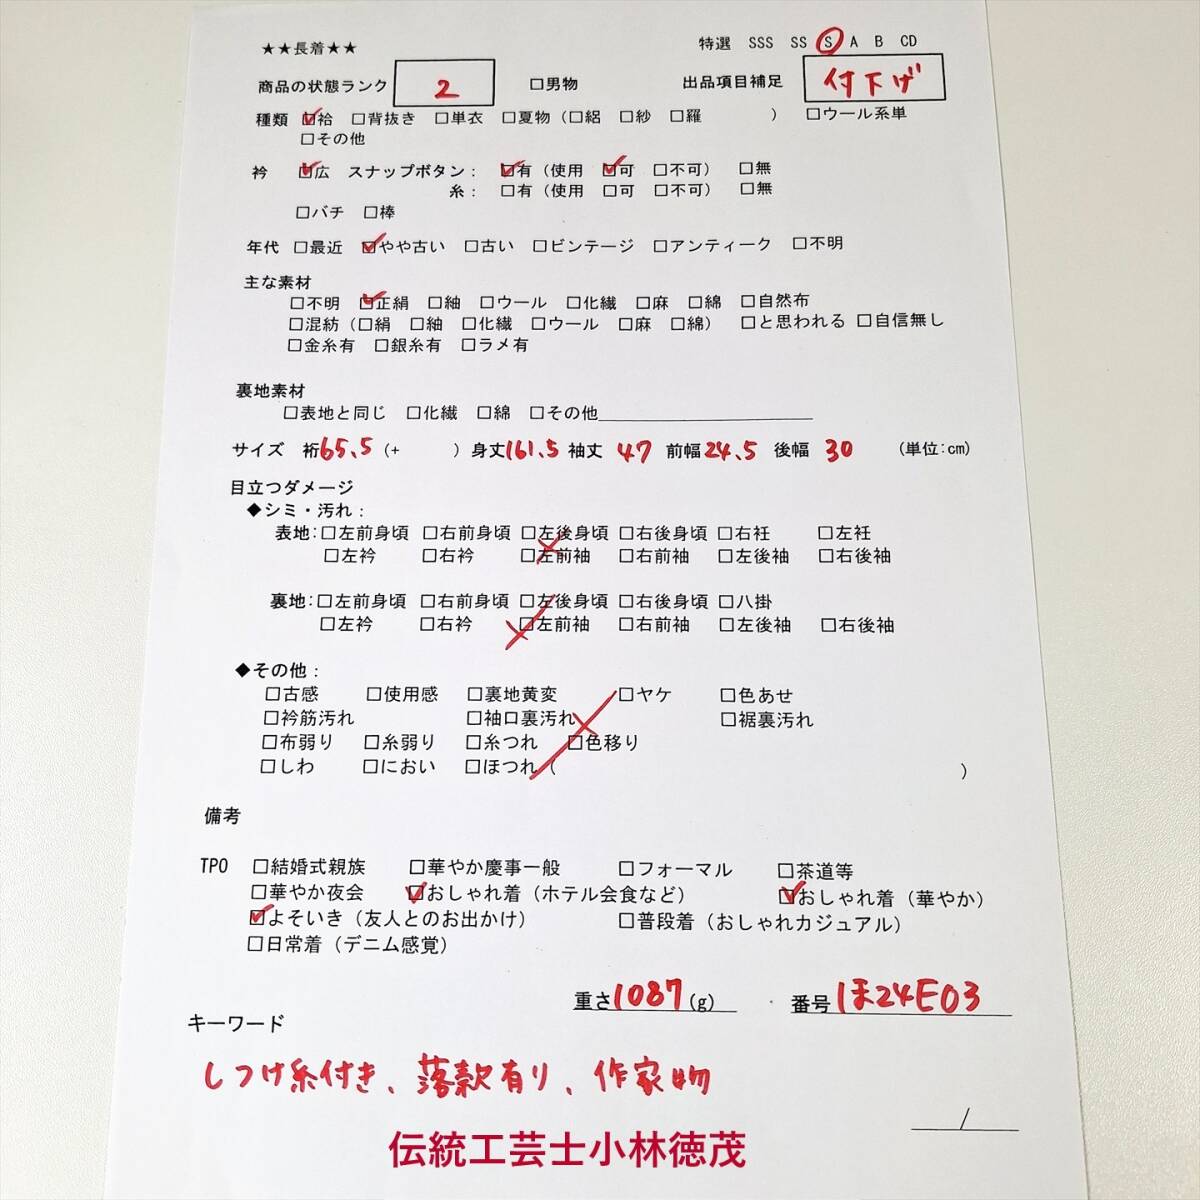 ★★長着★★ 特選 SSS SS S A B CD
商品の状態ランク 2 □男物 出品項目補足 付下げ
種類 ☑袷 □背抜き □単衣 □夏物（□絽 □紗 □羅 ） □ウール系単
□その他
衿 ☑広 スナップボタン： ☑有（使用 ☑可 □不可） □無
糸： □有（使用 □可 □不可） □無
□バチ □棒
年代 □最近 ☑やや古い □古い □ビンテージ □アンティーク □不明
主な素材
□不明 ☑正絹 □紬 □ウール □化繊 □麻 □綿 □自然布
□混紡（□絹 □紬 □化繊 □ウール □麻 □綿） □と思われる □自信無し
□金糸有 □銀糸有 □ラメ有
裏地素材
□表地と同じ □化繊 □綿 □その他
サイズ 裄65.5（+ ）身丈161.5 袖丈 47 前幅24.5 後幅 30 （単位:cm）
目立つダメージ
◆シミ・汚れ：
表地:□左前身頃 □右前身頃 □左後身頃 □右後身頃 □右衽 □左衽
□左衿 □右衿 □左前袖 □右前袖 □左後袖 □右後袖
裏地:□左前身頃 □右前身頃 □左後身頃 □右後身頃 □八掛
□左衿 □右衿 □左前袖 □右前袖 □左後袖 □右後袖
◆その他：
□古感 □使用感 □裏地黄変 □ヤケ □色あせ
□衿筋汚れ □袖口裏汚れ □裾裏汚れ
□布弱り □糸弱り □糸つれ □色移り
□しわ □におい □ほつれ（ ）
備考
TPO □結婚式親族 □華やか慶事一般 □フォーマル □茶道等
□華やか夜会 ☑おしゃれ着（ホテル会食など） ☑おしゃれ着（華やか）
☑よそいき（友人とのお出かけ） □普段着（おしゃれカジュアル）
□日常着（デニム感覚）
重さ1087(g) 番号 ほ24E03
キーワード
しつけ糸付き、落款有り、作家物
/
伝統工芸士小林徳茂